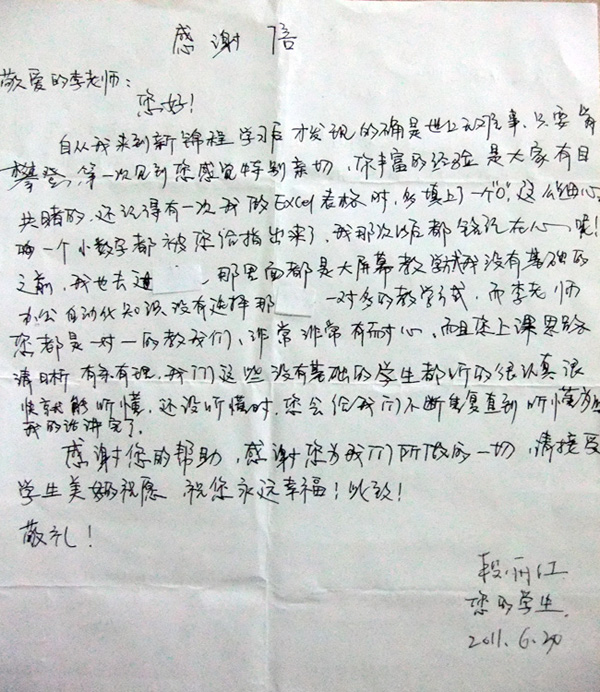 感谢信
敬爱的李老师：
您好！
自从我来到新锦程学习后才发现的确是世上无难事，只要肯
攀登，第一次见到您感觉特别亲切，你丰富的经验是大家有目
共睹的，还记得有一次我做Excel表格时，多填上了一个"0"，这么细心
一个小数字都被您给指出来了，我那次以后都铭记在心呢！
之前，我也去过 ，那里面都是大屏幕教学 我没有基础的
办公自动化知识没有选择那 一对多的教学方式，而李老师
您都是一对一的教我们，非常非常有耐心，而且您上课思路
清晰有条有理，我们这些没有基础的学生都听的很认真很
快就能听懂，还没听懂时，您会给我们不断重复直到听懂为止
我的话讲完了。
感谢您的帮助，感谢您为我们所做的一切，请接受
学生美好的祝愿 祝您永远幸福！此致！
敬礼！
段丽江
您的学生
2011.6.20